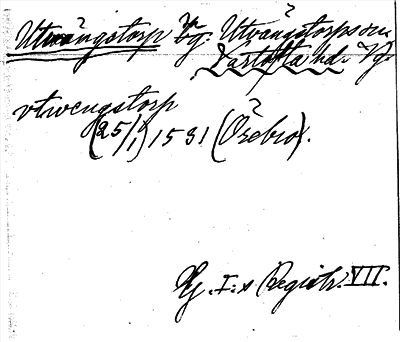 Utvängstorp by. Utvängstorps sn.
Vartofta hd. Vg.
vtwengstorp
(25/1) 1531 (Örebro).
G. I:s Registr. VII.